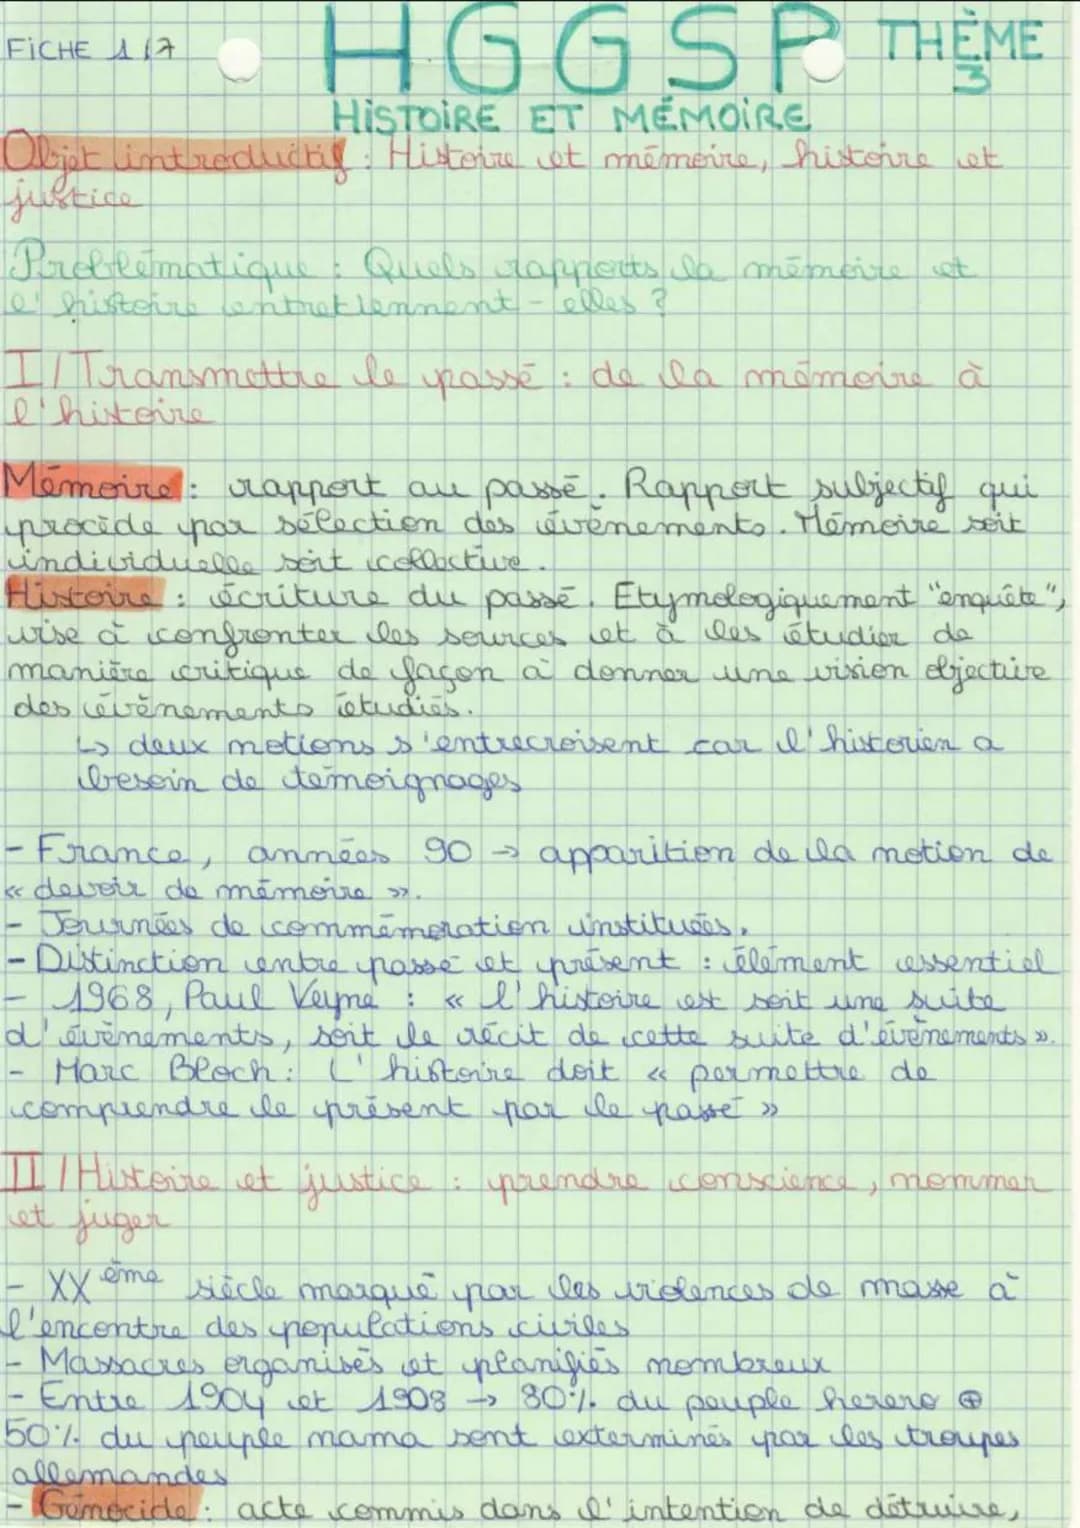 FICHE 1/7
HGGSP THÈME
3
HISTOIRE ET MÉMOIRE
Objet introductif : Histoire et mémoire, histoire et
justice
Problématique : Quels rapports la mémoire et
l'histoire entretiennent-elles ?
I/ Transmettre le passé : de la mémoire à
l'histoire
Mémoire : rapport au passé. Rapport subjectif qui
procède par sélection des évènements. Mémoire soit
individuelle soit collective.
Histoire : écriture du passé. Etymologiquement "enquête",
vise à confronter les sources et à les étudier de
manière critique de façon à donner une vision objective
des évènements étudiés.
↳ deux notions s'entrecroisent car l'historien a
besoin de témoignages
- France, années 90 → apparition de la notion de
« devoir de mémoire ».
- Journées de commémoration instituées.
- Distinction entre passé et présent : élément essentiel
- 1968, Paul Veyne : « l'histoire est soit une suite
d'évènements, soit le récit de cette suite d'évènements ».
- Marc Bloch : L'histoire doit « permettre de
comprendre le présent par le passé »
II/ Histoire et justice : prendre conscience, nommer
et juger
- XXème siècle marqué par les violences de masse à
l'encontre des populations civiles
- Massacres organisés et planifiés nombreux
- Entre 1904 et 1908 → 80% du peuple herero ⊕
50% du peuple nama sont exterminés par les troupes
allemandes
- Génocide : acte commis dans l'intention de détruire,